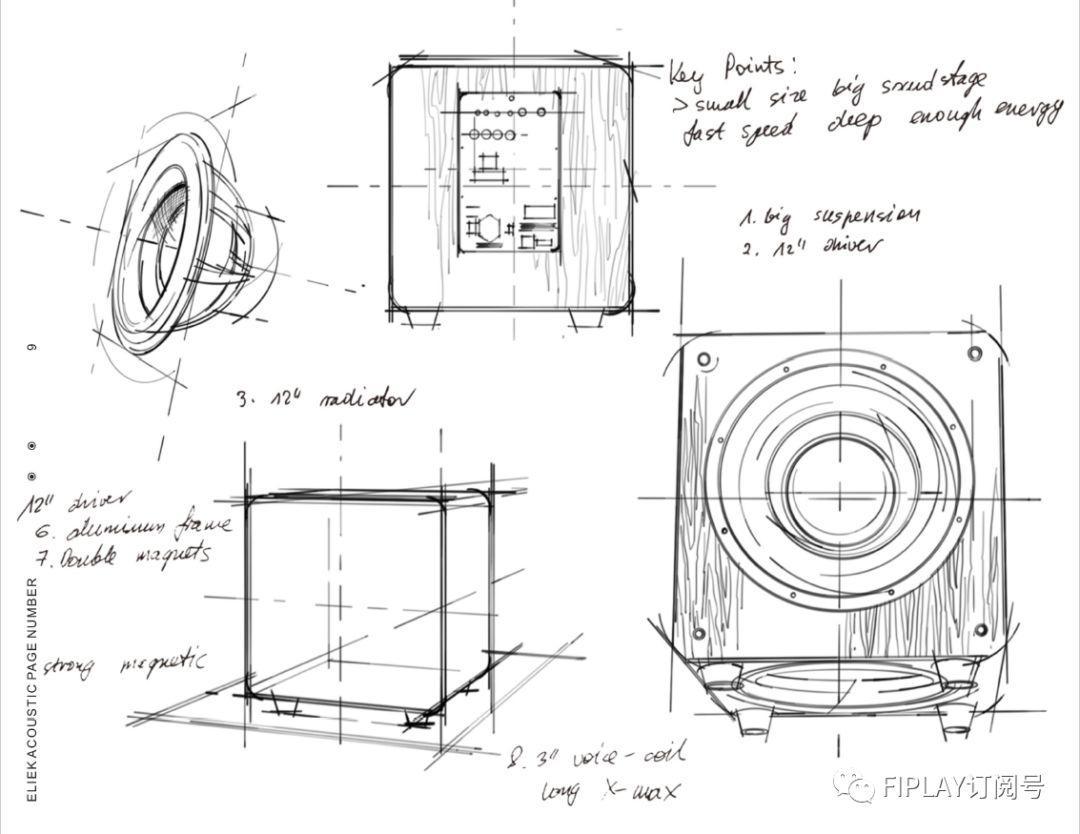 Key Points:
> small size big soundstage
fast speed deep enough energy
1. big suspension
2. 12" driver
3. 12" radiator
12" driver
6. aluminum frame
7. Double magnets
strong magnetic
8. 3" voice-coil
long X-max
9
ELIEK ACOUSTIC PAGE NUMBER
FIPLAY订阅号